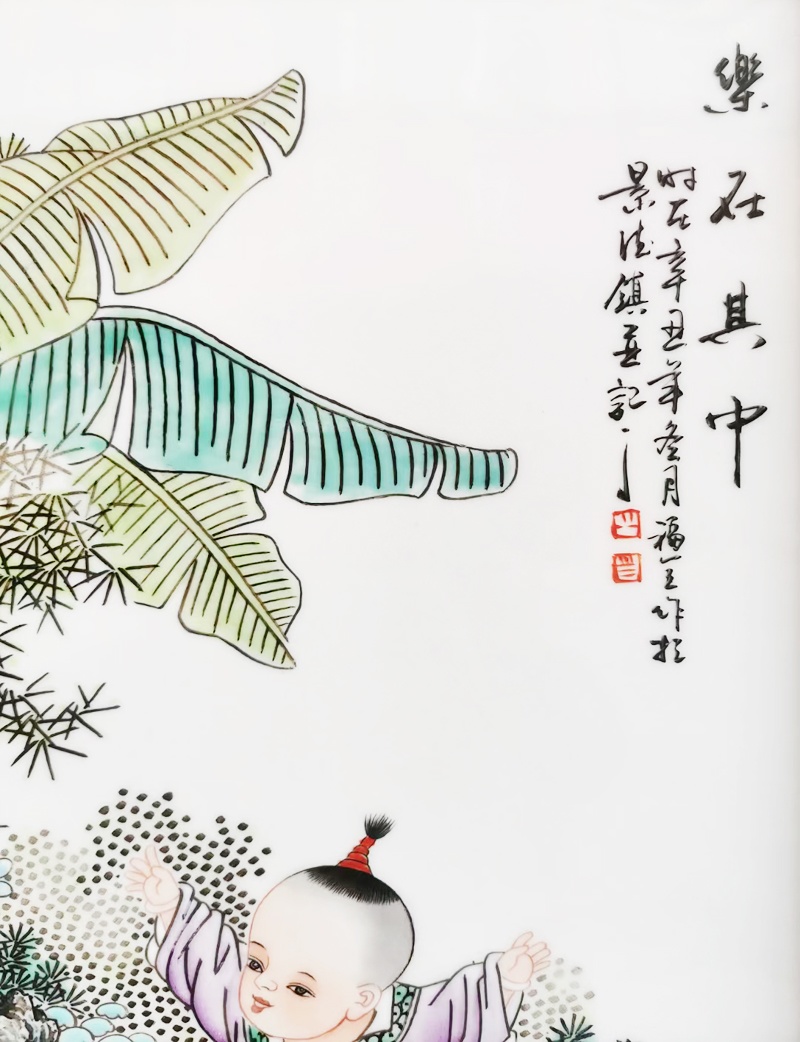 樂在其中
时在辛丑年冬月福立作於
景德鎮並記